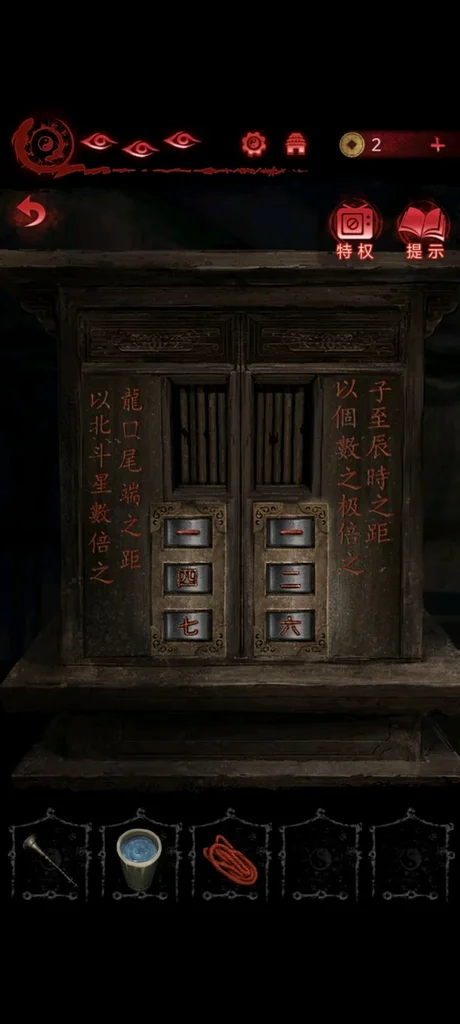 2
特权
提示
子至辰時之距
以個數之极倍之
龍口尾端之距
以北斗星數倍之
一
四
七
一
二
六